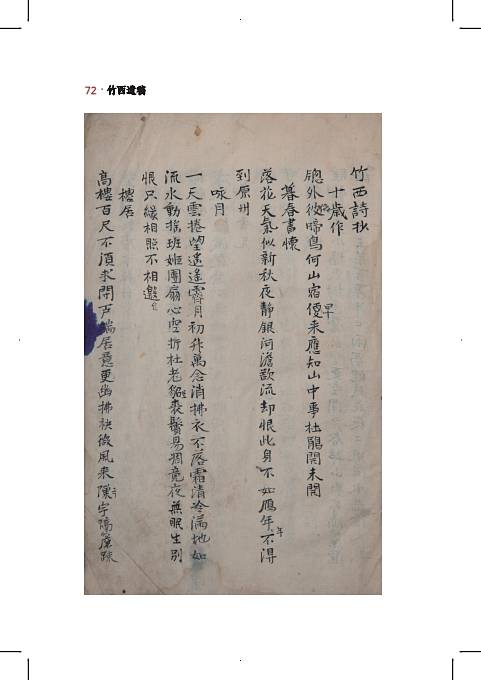 72 · 竹西遺稿
竹西詩抄
十歲作
窓外彼啼鳥何山宿便來應知山中事杜鵑開未開
早
暮春書懷
落花天氣似新秋夜靜銀河澹欲流却恨此身不如鴈年不淂
年
到原州
咏月
一天雲捲望遙遙霽月初升萬念消拂衣不落霜清冷滿地如
流水動搖班姬團扇心空折杜老貂裘鬢易凋竟夜無眠生別
恨只緣相照不相邀
樓居
高樓百尺不須求閉戶端居意更幽拂袂微風來隙宇隔簾踈